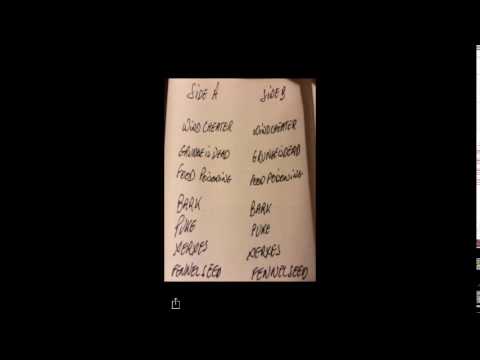 SIDE A SIDE B
WINDCHEATER WINDCHEATER
GRUNGE IS DEAD GRUNGE IS DEAD
FOOD POISONING FOOD POISONING
BARK BARK
PUKE PUKE
XERXES XERXES
FENNELSEED FENNELSEED